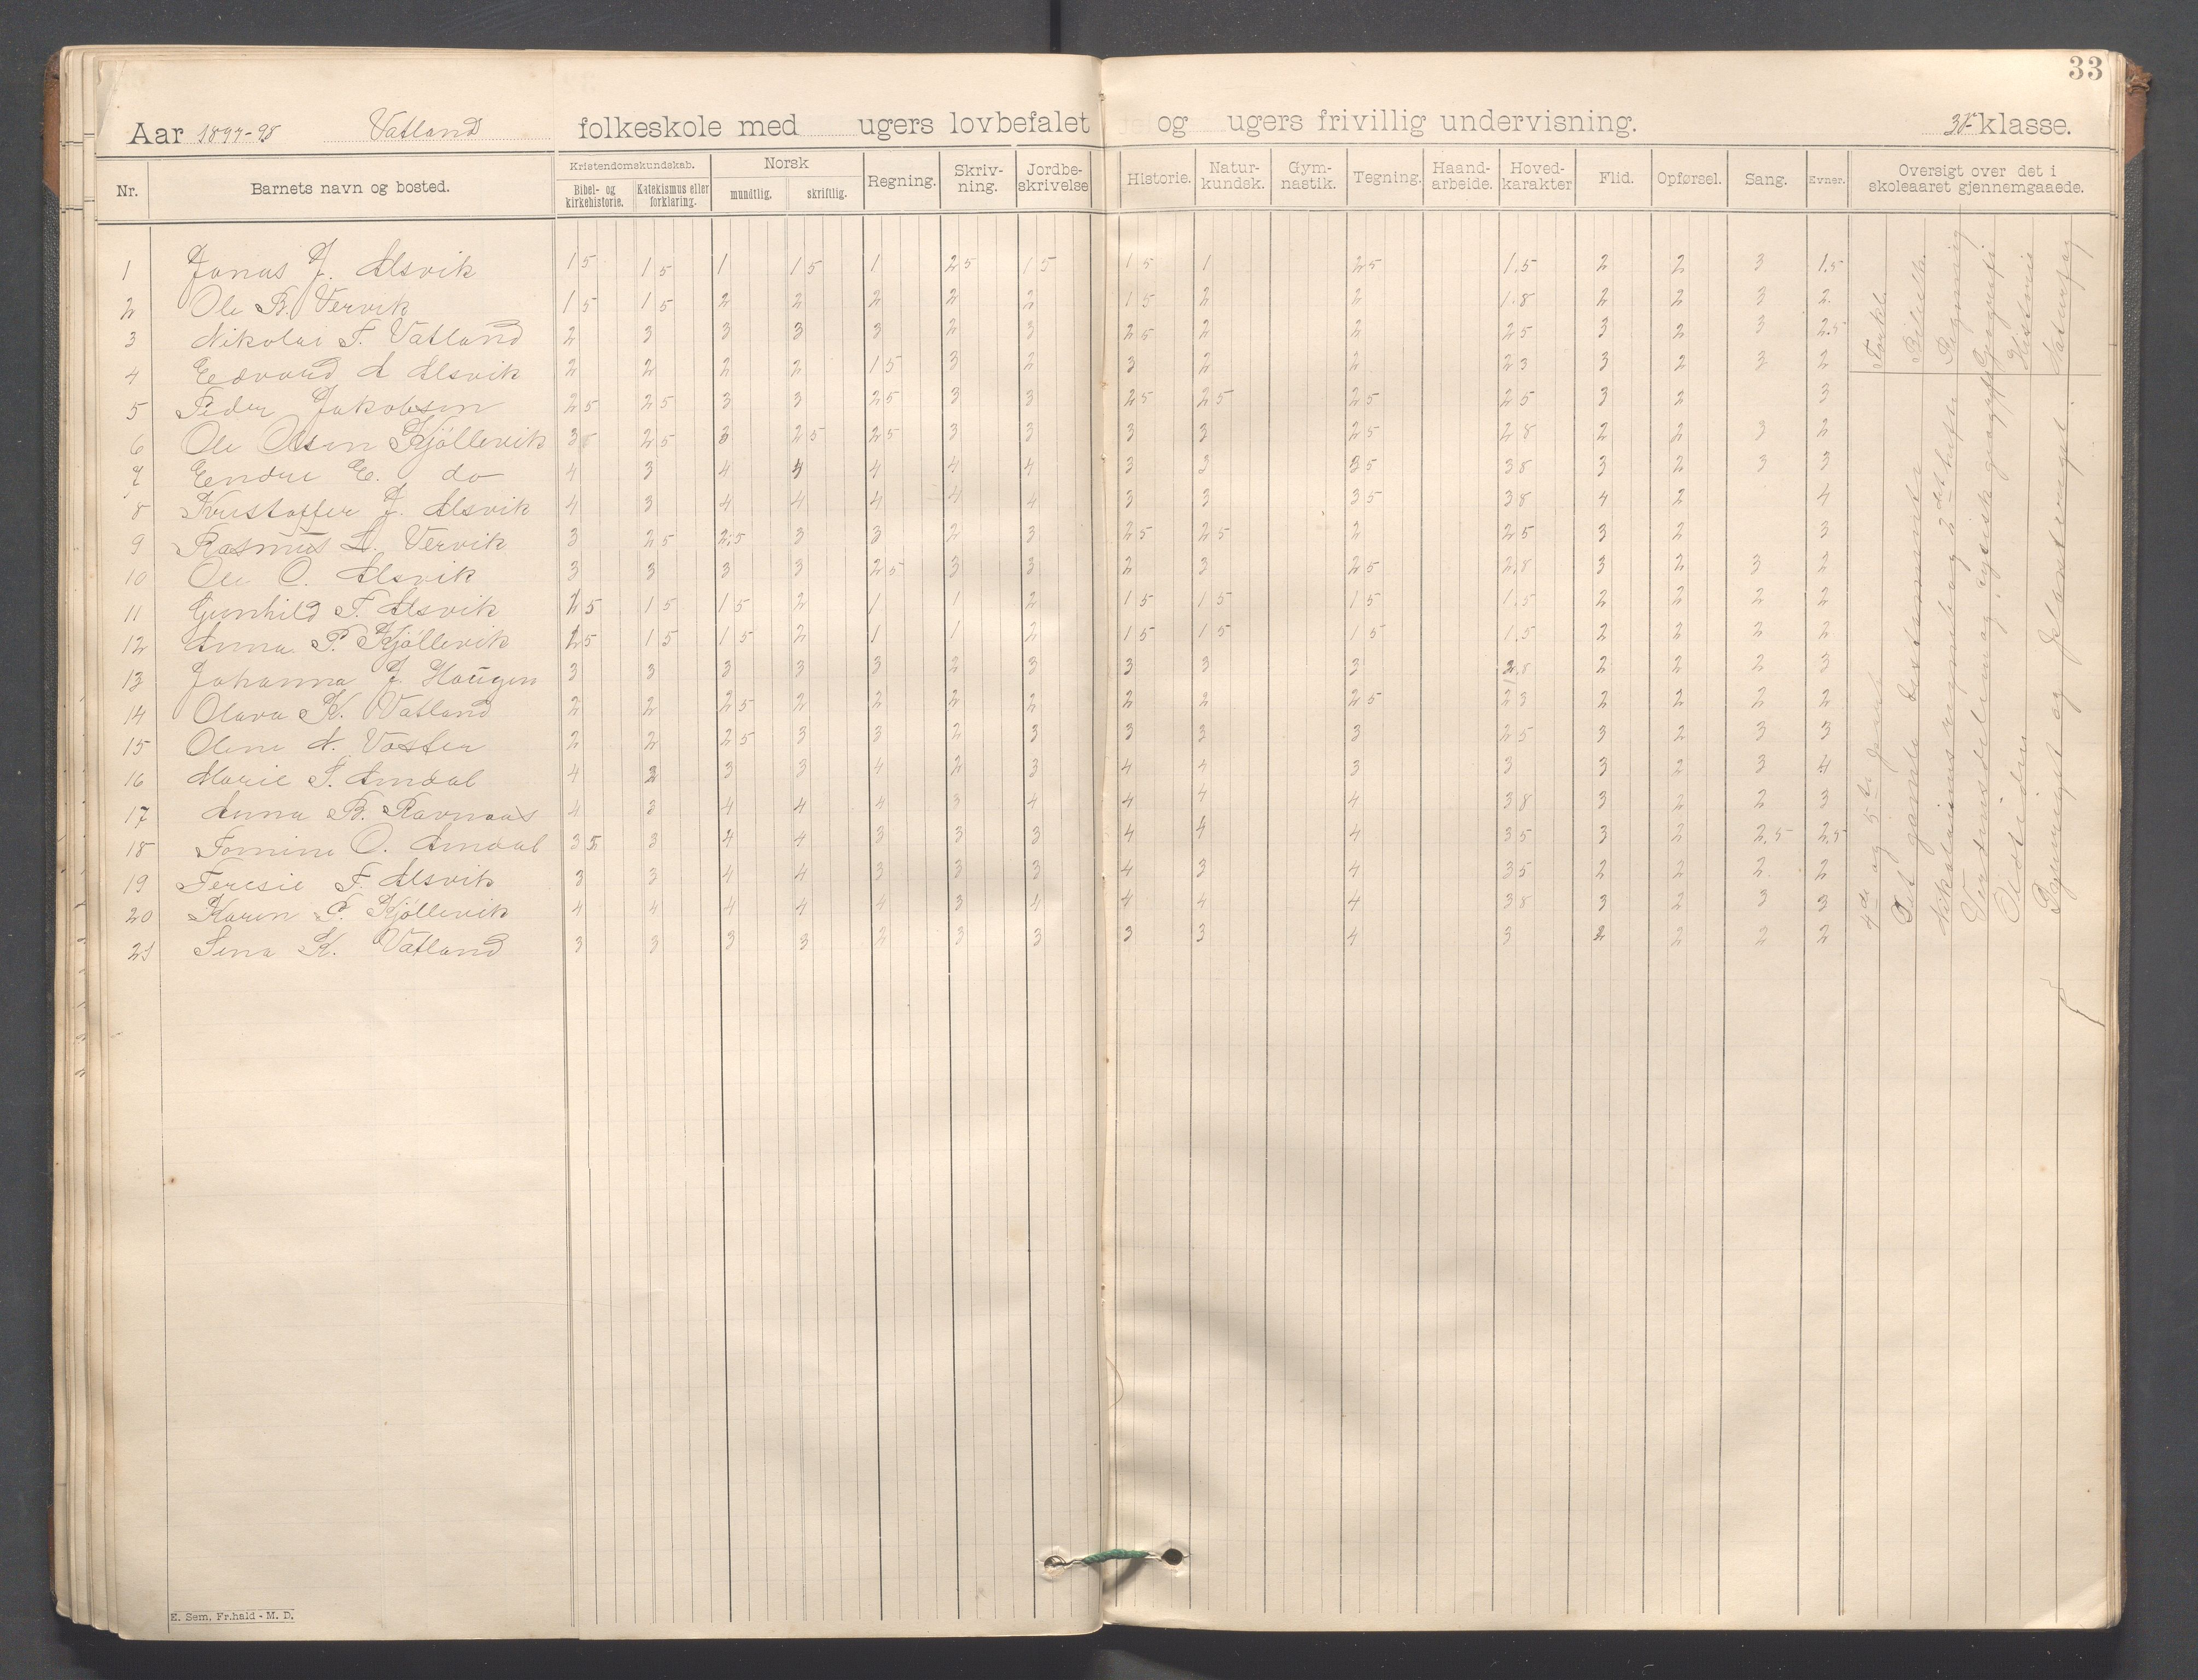 33
Aar 1897-98 Vatland folkeskole med ugers lovbefalet og ugers frivillig undervisning. 3die klasse.
Nr. Barnets navn og bosted. Kristendomskundskab. Bibel- og kirkehistorie. Katekismus eller forklaring. Norsk mundtlig. skriftlig. Regning. Skriv-ning. Jordbe-skrivelse Historie. Natur-kundsk. Gym-nastik. Tegning. Haand-arbeide. Hoved-karakter Flid. Opførsel. Sang. Evner. Oversigt over det i skoleaaret gjennemgaaede.
1 Jonas J. Alsvik 1 5 1 5 1 1 5 1 2 5 1 5 1 5 1 2 5 1.5 2 2 3 1.5
2 Ole B. Vervik 1 5 1 5 2 2 2 2 2 1 5 2 2 1.8 2 2 3 2.
3 Nikolai T. Vatland 2 3 3 3 3 2 3 2 5 2 2 2 5 3 2 3 2.5
4 Edvard A Alsvik 2 2 2 2 1 5 3 2 3 2 2 2 3 3 2 3 2
5 Peder Jakobsen 2 5 2 5 3 3 2 5 3 3 2 5 2 5 2 5 2 5 3 2 3
6 Ole Olsen Kjöllevik 3 2 5 3 2 5 2 5 3 3 3 3 2 5 2 8 2 2 3 2
7 Endre E. do 4 3 4 4 4 4 4 3 3 3 5 3 8 3 2 3 3
8 Kristoffer J. Alsvik 4 3 4 4 4 4 4 3 3 3 5 3 8 4 2 4
9 Rasmus L. Vervik 3 2 5 2.5 3 3 2 3 2 5 2 5 2 2 5 3 2 3
10 Ole O. Alsvik 3 3 3 3 2 5 3 3 2 3 2 5 2.8 3 2 3 2
11 Gunhild T. Alsvik 1 5 1 5 1 5 2 1 1 2 1 5 1 5 1 5 1.5 2 2 2 2
12 Anna P. Kjöllevik 1 5 1 5 1 5 2 1 1 2 1 5 1 5 1 5 1.5 2 2 2 2
13 Johanna J. Haugen 3 3 3 3 3 2 3 3 3 3 2.8 2 2 2 3
14 Olava K. Vatland 2 2 2 5 2 2 2 2 2 2 2 5 2 3 2 2 2 2
15 Oline A. Vaster 2 2 2 5 3 3 2 3 3 3 3 2 5 3 2 3 3
16 Marie T. Amdal 4 2 3 3 4 2 3 4 4 3 3 3 2 3 4
17 Anna B. Ravnaas 4 3 4 4 4 3 4 4 4 4 3 8 3 2 2 3
18 Tomine O. Amdal 3 5 3 4 4 3 3 3 4 4 4 3 5 3 2 2,5 2,5
19 Teresie F. Alsvik 3 3 4 4 3 3 3 4 3 4 3 5 2 2 2 2
20 Karen P. Kjöllevik 4 4 4 4 4 3 4 4 4 4 3 8 3 2 3 3
21 Sina K. Vatland 3 3 3 3 2 3 3 3 3 4 3 2 2 2 2
Forkl. 4de og 5te
Bibelh. Det gamle testamente
Regning Nikolaisens regnebog 2det hefte
Geografi Verdensdelene og fysisk geografi
Historie Oldtiden
Naturfag Dyreriget og Planteriget.
E. Sem, Fr.hald - M. D.